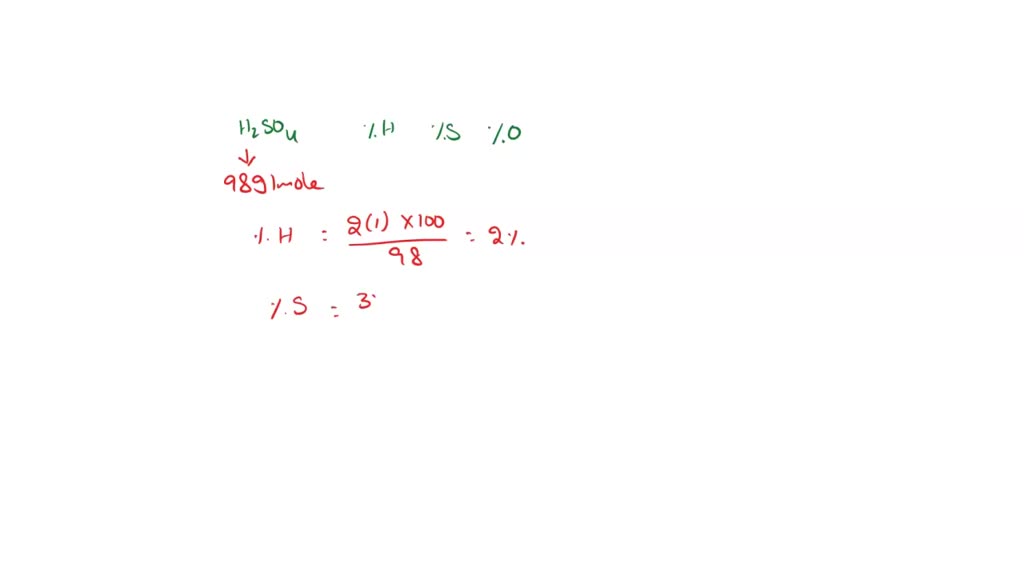 H₂SO₄ % H % S % O
↓
98g/mole
% H = 2(1) × 100 / 98 = 2%.
% S = 3